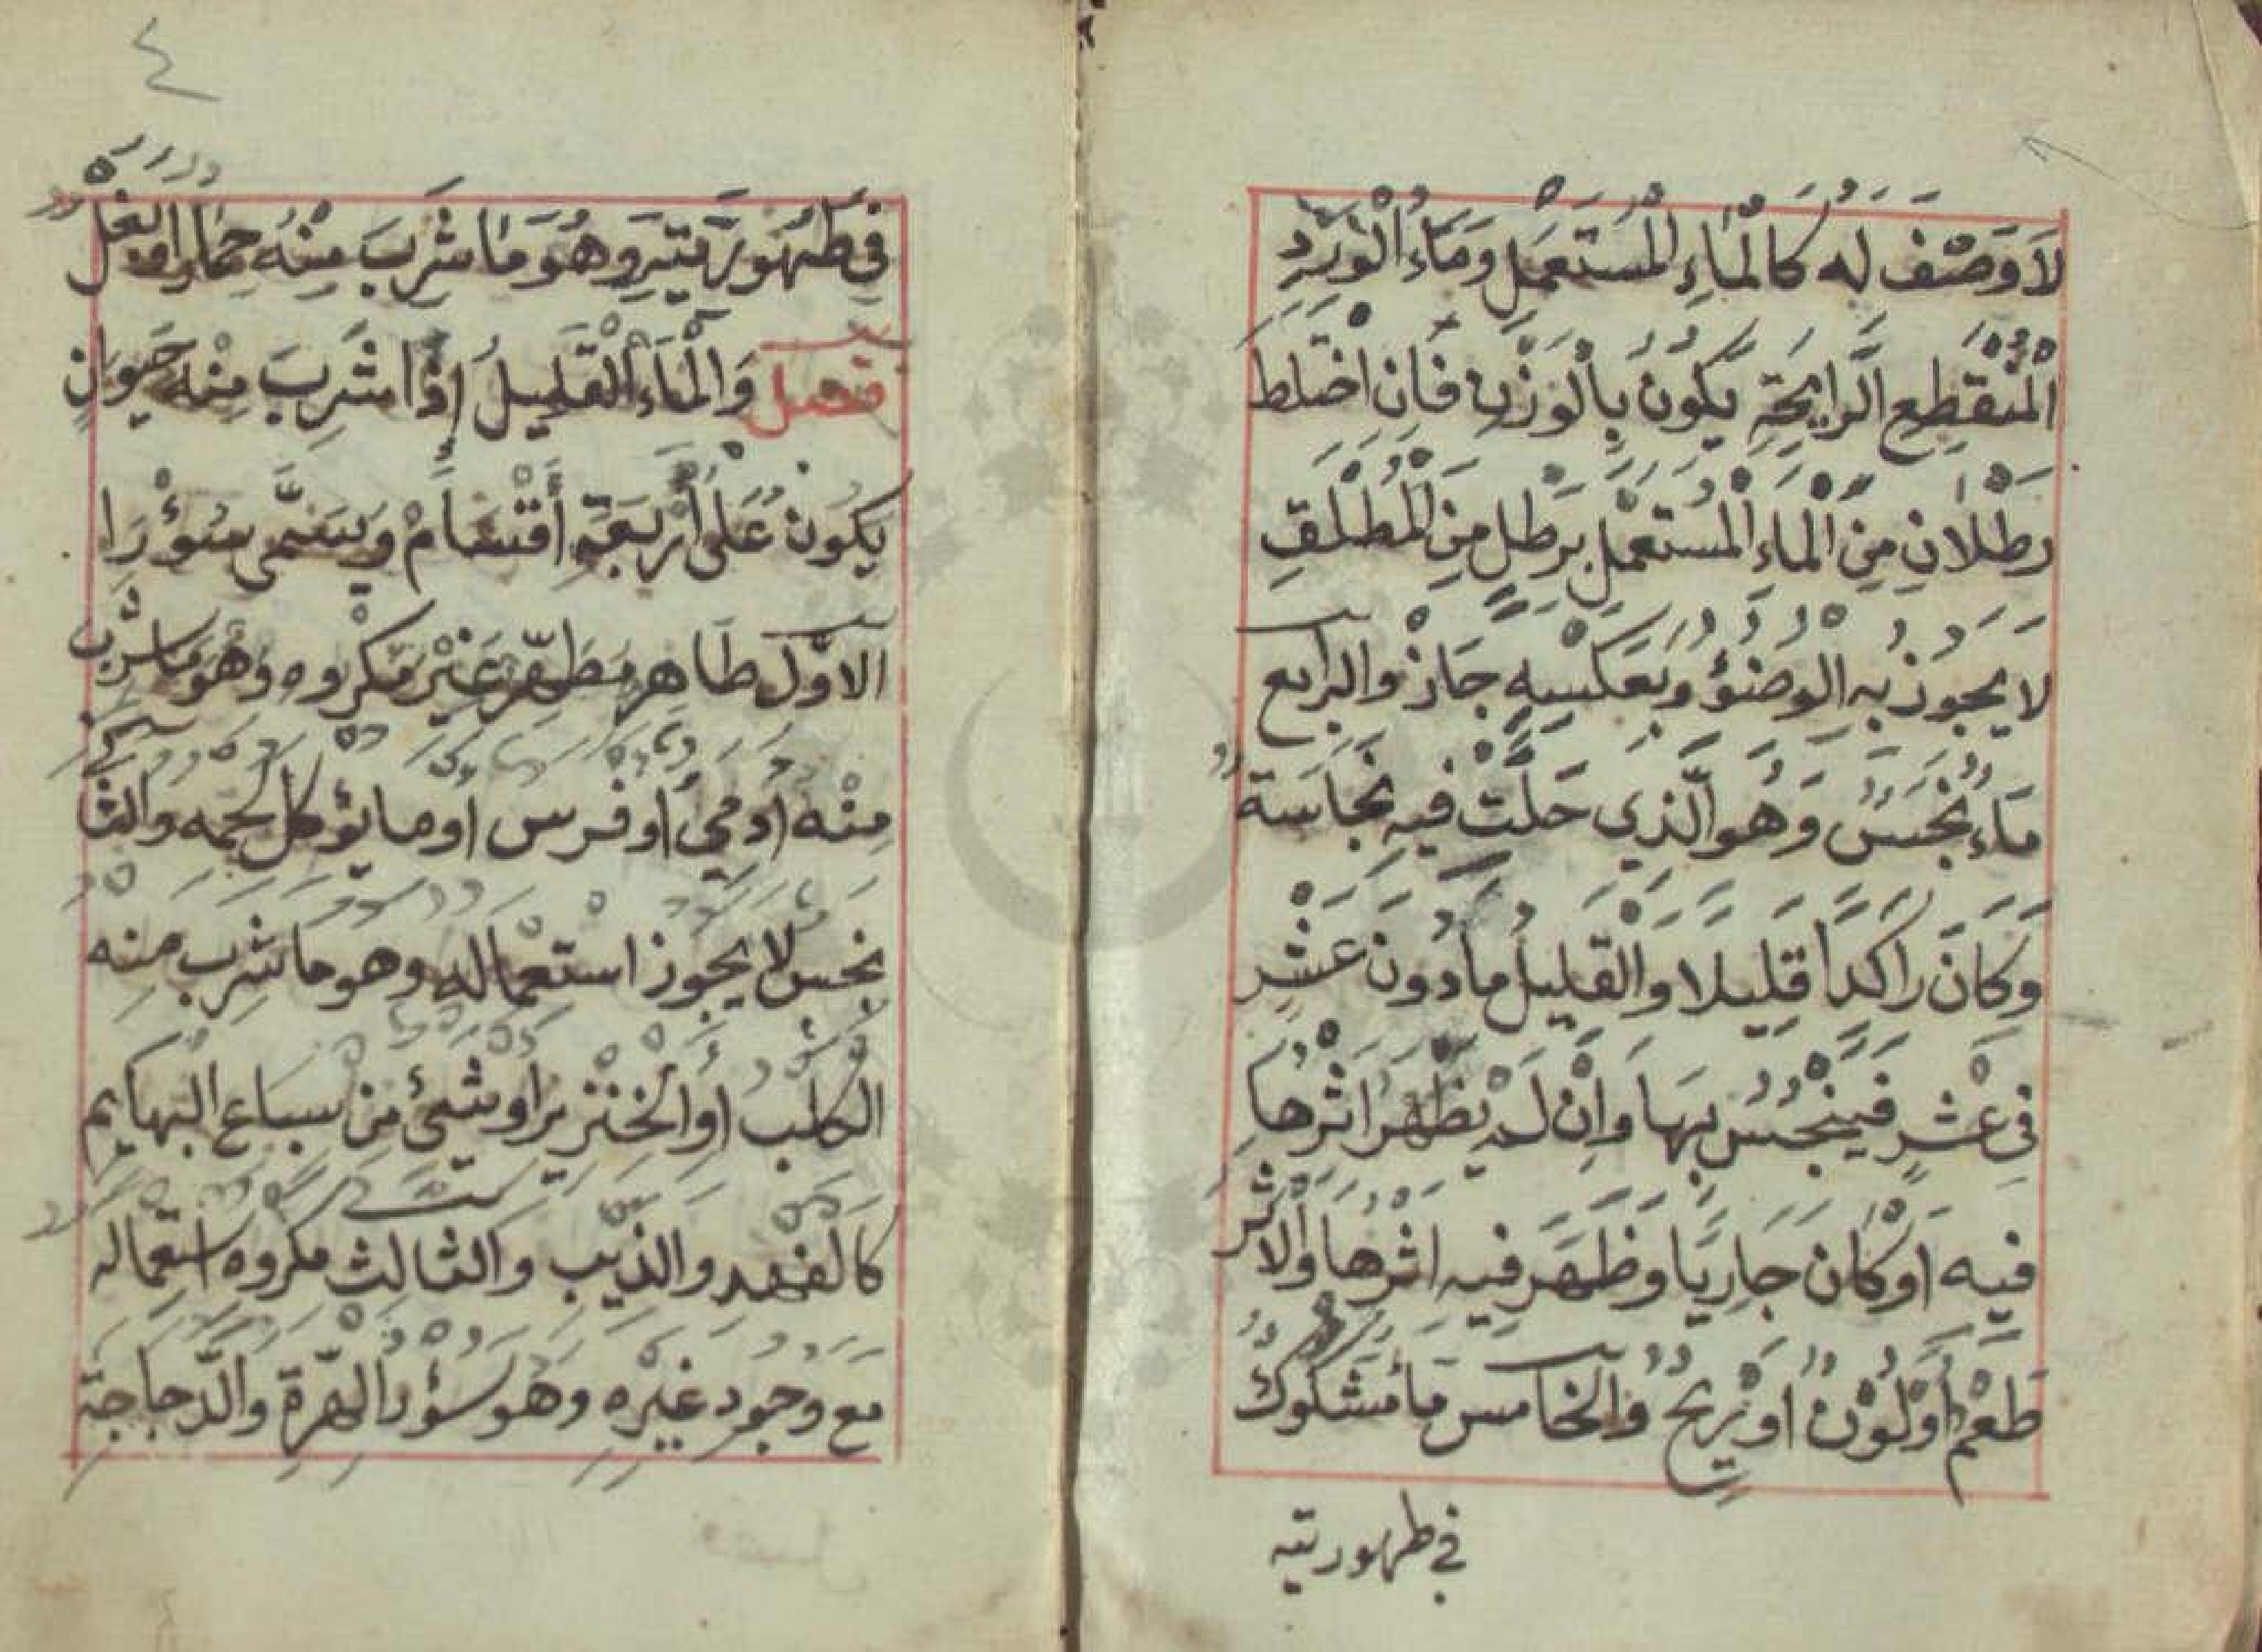 لَا وَصْفَ لَهُ كَالْمَاءِ الْمُسْتَعْمَلِ وَمَاءُ الْوَرْدِ
الْمُنْقَطِعِ الرَّايِحَةِ يَكُونُ بِالْوَزْنِ فَاِنِ اخْتَلَطَ
رَطْلَانِ مِنَ الْمَاءِ الْمُسْتَعْمَلِ بِرَطْلٍ مِنَ الْمُطْلَقِ
لَا يَجُوزُ بِهِ الْوُضُوْءُ وَبِعَكْسِهِ جَازْ وَالرَّابِع
مَاءٌ نَجِسٌ وَهُوَ الَّذِي حَلَّتْ فِيهِ نَجَاسَةٌ
وَكَانَ رَاكِدًا قَلِيلًا وَالْقَلِيلُ مَادُونَ عَشْرٍ
فِي عَشْرٍ فَيَنْجُسُ بِهَا وَاِنْ لَمْ يَظْهَرْ اَثَرُهَا
فِيهِ اَوْ كَانَ جَارِيًا وَظَهَرَ فِيهِ اَثَرُهَا وَالْاَثَر
طَعْمٌ اَوْ لَوْنٌ اَوْ رِيحٌ وَالْخَامِس مَاءٌ مَشْكُوكٌ
في طهوريته
٤
فِي طَهُورِيَّتِهِ وَهُوَ مَا شَرِبَ مِنْهُ حِمَارٌ اَوْ بَغْلٌ
فصل وَالْمَاءُ الْقَلِيلُ اِذَا شَرِبَ مِنْهُ حَيَوَانٌ
يَكُونُ عَلَى أَرْبَعَةِ أَقْسَامٍ وَيُسَمَّى سُؤْرًا
الاَوَّل طَاهِرٌ مُطَهِّرٌ غَيْرُ مَكْرُوهٍ وَهُوَ مَا شَرِبَ
مِنْهُ اَدَمِيٌّ اَوْ فَرَسٌ اَوْ مَا يُؤْكَلُ لَحْمُهُ وَالثَّا
نَجِسٌ لَا يَجُوزُ اسْتِعْمَالُهُ وَهُوَ مَا شَرِبَ مِنْهُ
الْكَلْبُ اَوِ الْخِنْزِيرُ اَوْ شَيْئٌ مِنْ سِبَاعِ الْبَهَايِم
كَالْفَهْدِ وَالذِّيبِ وَالثَّالِث مَكْرُوهٌ اسْتِعْمَالُهُ
مَعَ وُجُودِ غَيْرِهِ وَهُوَ سُؤْرُ الْهِرَّةِ وَالدَّجَاجَةِ